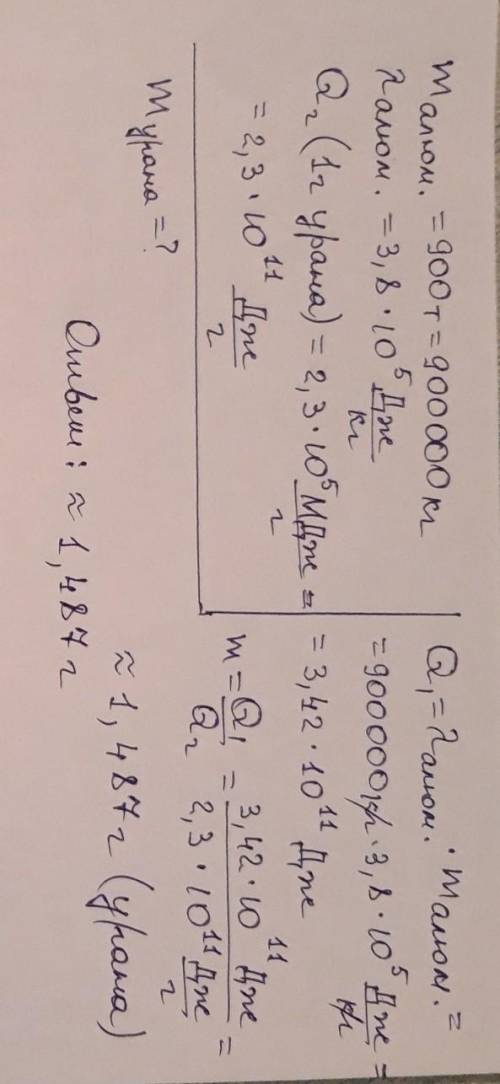 m алюм. = 900 т = 900000 кг
λ алюм. = 3,8 · 10⁵ Дж/кг
Q₂ (1г урана) = 2,3 · 10⁵ МДж/г =
= 2,3 · 10¹¹ Дж/г
m урана = ?
Q₁ = λ алюм. · m алюм. =
= 900000 кг · 3,8 · 10⁵ Дж/кг =
= 3,42 · 10¹¹ Дж
m = Q₁/Q₂ = 3,42 · 10¹¹ Дж / 2,3 · 10¹¹ Дж/г =
≈ 1,487 г (урана)
Ответ: ≈ 1,487 г